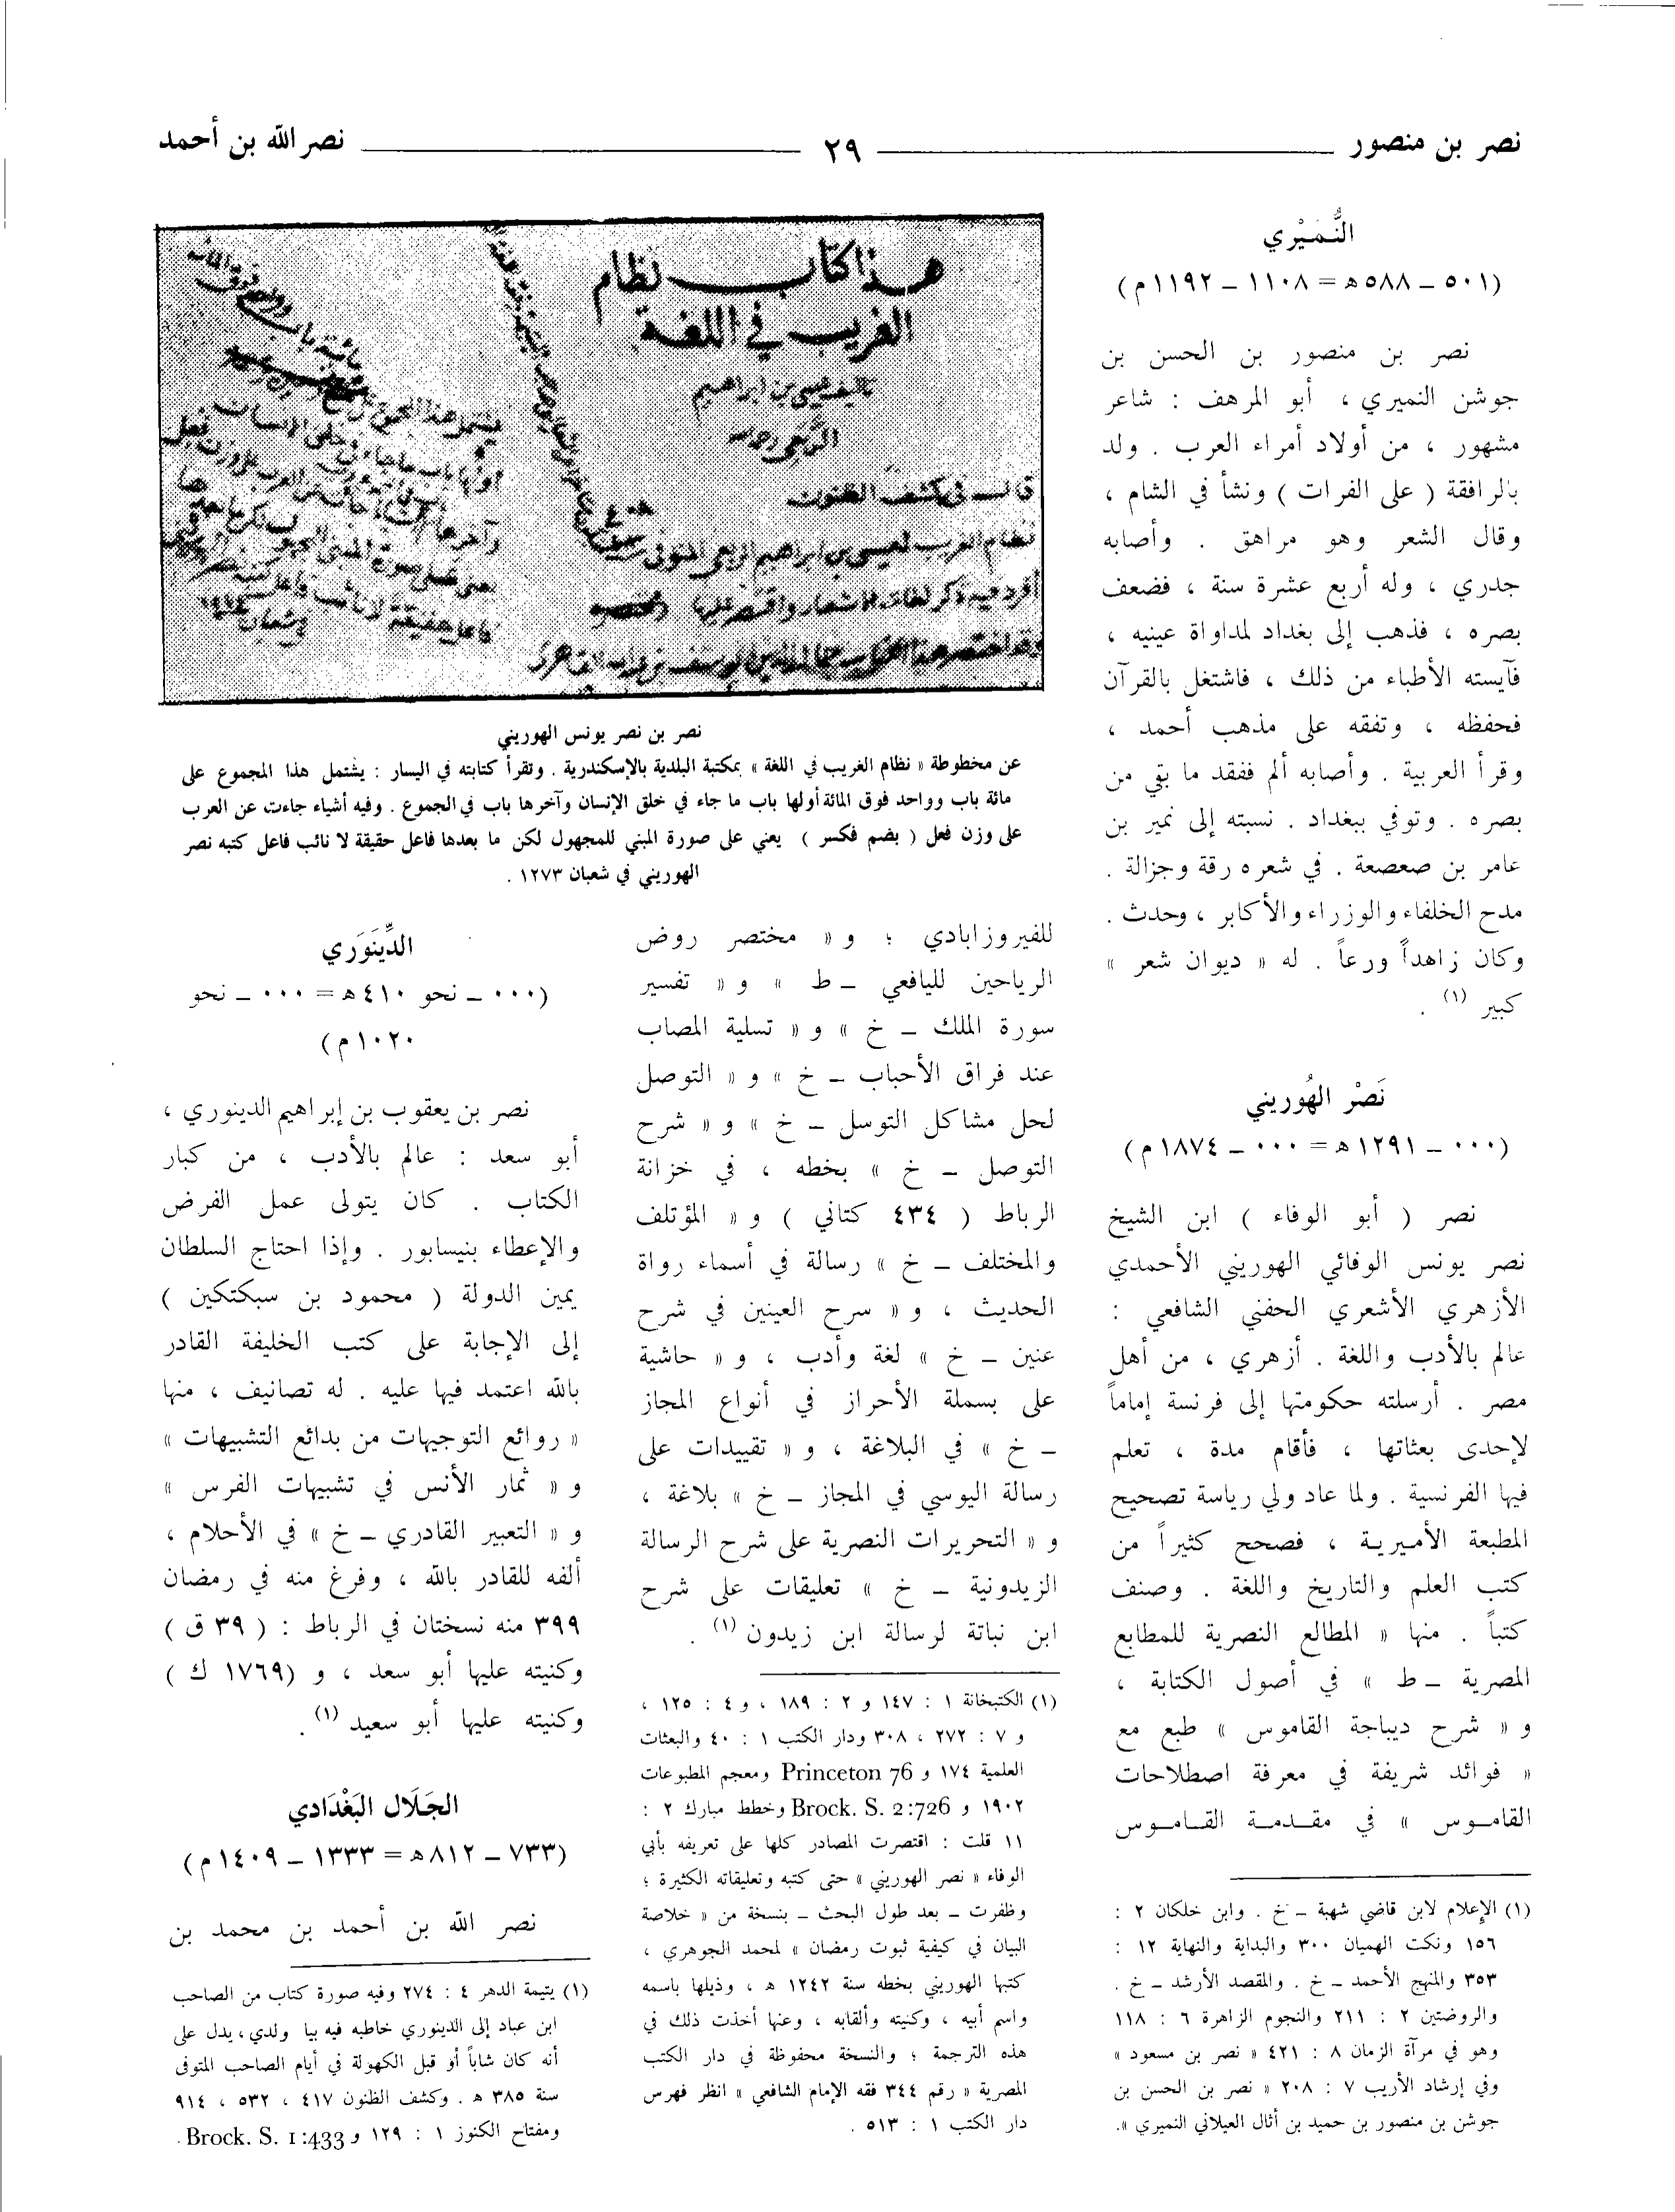 نصر بن منصور
٢٩
نصر الله بن أحمد
النُّمَيْري
(٥٠١ ــ ٥٨٨ ﻫ = ١١٠٨ ــ ١١٩٢ م)
نصر بن منصور بن الحسن بن
جوشن النميري ، أبو المرهف : شاعر
مشهور ، من أولاد أمراء العرب . ولد
بالرافقة ( على الفرات ) ونشأ في الشام ،
وقال الشعر وهو مراهق . وأصابه
جدري ، وله أربع عشرة سنة ، فضعف
بصره ، فذهب إلى بغداد لمداواة عينيه ،
فآيسته الأطباء من ذلك ، فاشتغل بالقرآن
فحفظه ، وتفقه على مذهب أحمد ،
وقرأ العربية . وأصابه ألم ففقد ما بقي من
بصره . وتوفي ببغداد . نسبته إلى نمير بن
عامر بن صعصعة . في شعره رقة وجزالة .
مدح الخلفاء والوزراء والأكابر ، وحدث .
وكان زاهداً ورعاً . له « ديوان شعر »
كبير (١) .
نَصْر الهُوريني
(٠٠٠ ــ ١٢٩١ ﻫ = ٠٠٠ ــ ١٨٧٤ م)
نصر ( أبو الوفاء ) ابن الشيخ
نصر يونس الوفائي الهوريني الأحمدي
الأزهري الأشعري الحفني الشافعي :
عالم بالأدب واللغة . أزهري ، من أهل
مصر . أرسلته حكومتها إلى فرنسة إماماً
لإحدى بعثاتها ، فأقام مدة ، تعلم
فيها الفرنسية . ولما عاد ولي رياسة تصحيح
المطبعة الأميرية ، فصحح كثيراً من
كتب العلم والتاريخ واللغة . وصنف
كتباً . منها « المطالع النصرية للمطابع
المصرية ــ ط » في أصول الكتابة ،
و « شرح ديباجة القاموس » طبع مع
« فوائد شريفة في معرفة اصطلاحات
القاموس » في مقدمة القاموس
(١) الإعلام لابن قاضي شهبة ــ خ . وابن خلكان ٢ :
١٥٦ ونكت الهميان ٣٠٠ والبداية والنهاية ١٢ :
٣٥٣ والمنهج الأحمد ــ خ . والمقصد الأرشد ــ خ .
والروضتين ٢ : ٢١١ والنجوم الزاهرة ٦ : ١١٨
وهو في مرآة الزمان ٨ : ٤٢١ « نصر بن مسعود »
وفي إرشاد الأريب ٧ : ٢٠٨ « نصر بن الحسن بن
جوشن بن منصور بن حميد بن أثال العيلاني النميري ».
هذا كتاب نظام
الغريب في اللغة
تأليف عيسى بن إبراهيم
الربعي رحمه
قال في كشف الظنون
نظام الغريب لعيسى بن ابراهيم الربعي المتوفى
أفرد فيه ذكر لغات الاشعار واقتصر عليها
نصر بن نصر يونس الهوريني
عن مخطوطة « نظام الغريب في اللغة » بمكتبة البلدية بالإسكندرية . وتقرأ كتابته في اليسار : يشتمل هذا المجموع على
مائة باب وواحد فوق المائة أولها باب ما جاء في خلق الإنسان وآخرها باب في الجموع . وفيه أشياء جاءت عن العرب
على وزن فعل ( بضم فكسر ) يعني على صورة المبني للمجهول لكن ما بعدها فاعل حقيقة لا نائب فاعل كتبه نصر
الهوريني في شعبان ١٢٧٣ .
للفيروزابادي ؛ و « مختصر روض
الرياحين لليافعي ــ ط » و « تفسير
سورة الملك ــ خ » و « تسلية المصاب
عند فراق الأحباب ــ خ » و « التوصل
لحل مشاكل التوسل ــ خ » و « شرح
التوصل ــ خ » بخطه ، في خزانة
الرباط ( ٤٣٤ كتاني ) و « المؤتلف
والمختلف ــ خ » رسالة في أسماء رواة
الحديث ، و « سرح العينين في شرح
عنين ــ خ » لغة وأدب ، و « حاشية
على بسملة الأحراز في أنواع المجاز
ــ خ » في البلاغة ، و « تقييدات على
رسالة اليوسي في المجاز ــ خ » بلاغة ،
و « التحريرات النصرية على شرح الرسالة
الزيدونية ــ خ » تعليقات على شرح
ابن نباتة لرسالة ابن زيدون (١) .
(١) الكتبخانة ١ : ١٤٧ و ٢ : ١٨٩ ، و ٤ : ١٢٥ ،
و ٧ : ٢٧٢ ، ٣٠٨ ودار الكتب ١ : ٤٠ والبعثات
العلمية ١٧٤ و Princeton 76 ومعجم المطبوعات
١٩٠٢ و Brock. S. 2:726 وخطط مبارك ٢ :
١١ قلت : اقتصرت المصادر كلها على تعريفه بأبي
الوفاء « نصر الهوريني » حتى كتبه وتعليقاته الكثيرة ؛
وظفرت ــ بعد طول البحث ــ بنسخة من « خلاصة
البيان في كيفية ثبوت رمضان » لمحمد الجوهري ،
كتبها الهوريني بخطه سنة ١٢٤٢ ﻫ ، وذيلها باسمه
واسم أبيه ، وكنيته وألقابه ، وعنها أخذت ذلك في
هذه الترجمة ؛ والنسخة محفوظة في دار الكتب
المصرية « رقم ٣٤٤ فقه الإمام الشافعي » انظر فهرس
دار الكتب ١ : ٥١٣ .
الدِّينَوَري
(٠٠٠ ــ نحو ٤١٠ ﻫ = ٠٠٠ ــ نحو
١٠٢٠ م)
نصر بن يعقوب بن إبراهيم الدينوري ،
أبو سعد : عالم بالأدب ، من كبار
الكتاب . كان يتولى عمل الفرض
والإعطاء بنيسابور . وإذا احتاج السلطان
يمين الدولة ( محمود بن سبكتكين )
إلى الإجابة على كتب الخليفة القادر
بالله اعتمد فيها عليه . له تصانيف ، منها
« روائع التوجيهات من بدائع التشبيهات »
و « ثمار الأنس في تشبيهات الفرس »
و « التعبير القادري ــ خ » في الأحلام ،
ألفه للقادر بالله ، وفرغ منه في رمضان
٣٩٩ منه نسختان في الرباط : ( ٣٩ ق )
وكنيته عليها أبو سعد ، و (١٧٦٩ ك )
وكنيته عليها أبو سعيد (١) .
الجَلَال البَغْدَادي
(٧٣٣ ــ ٨١٢ ﻫ = ١٣٣٣ ــ ١٤٠٩ م)
نصر الله بن أحمد بن محمد بن
(١) يتيمة الدهر ٤ : ٢٧٤ وفيه صورة كتاب من الصاحب
ابن عباد إلى الدينوري خاطبه فيه بيا ولدي، يدل على
أنه كان شاباً أو قبل الكهولة في أيام الصاحب المتوفى
سنة ٣٨٥ ﻫ . وكشف الظنون ٤١٧ ، ٥٣٢ ، ٩١٤
ومفتاح الكنوز ١ : ١٢٩ و Brock. S. 1:433.